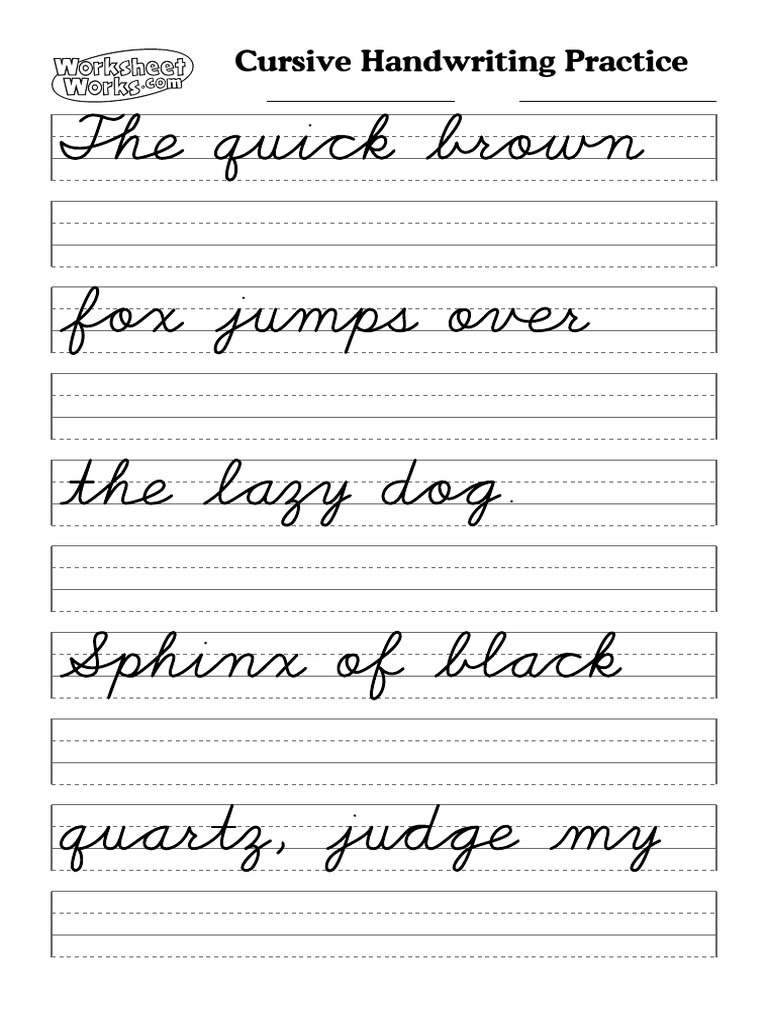 Worksheet
Works.com
Cursive Handwriting Practice
The quick brown
fox jumps over
the lazy dog.
Sphinx of black
quartz, judge my